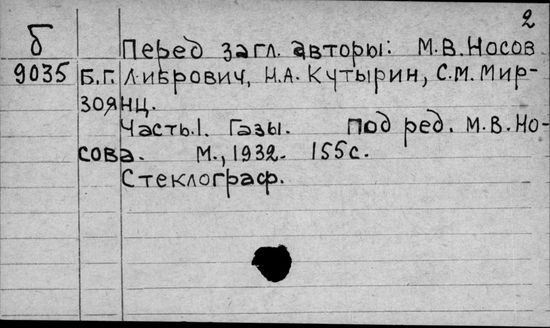 2
б Перед загл. авторы: М.В.Носов
9035 Б.Г.Либрович, Н.А.Кутырин, С.М.Мир-
зоянц.
Часть.1. Газы. Под ред. М.В.Но-
сова. М., 1932. 155с.
Стеклограф.